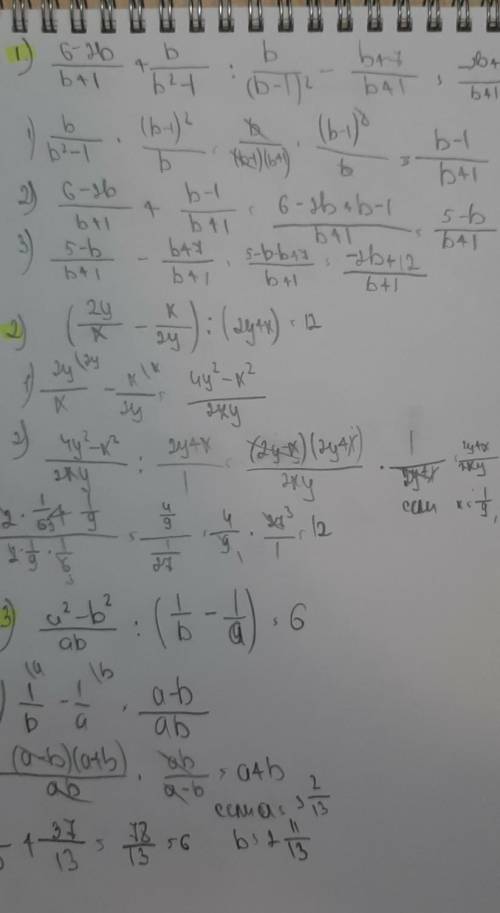 1) (6-2b)/(b+1) + b/(b²-1) : b/(b-1)² - (b+7)/(b+1) = (-2b+)/(b+1)
1) b/(b²-1) · (b-1)²/b = b/((b-1)(b+1)) · (b-1)²/b = (b-1)/(b+1)
2) (6-2b)/(b+1) + (b-1)/(b+1) = (6-2b+b-1)/(b+1) = (5-b)/(b+1)
3) (5-b)/(b+1) - (b+7)/(b+1) = (5-b-b+7)/(b+1) = (-2b+12)/(b+1)
2) (2y/x - x/2y) : (2y+x) = 12
1) 2y\2y/x - x\x/2y = (4y²-x²)/2xy
2) (4y²-x²)/2xy : (2y+x)/1 = (2y-x)(2y+x)/2xy · 1/(2y+x) = (2y+x)/2xy
если x = 1/9,
= (4/9)/(1/27) = 4/9 · 27³/1 = 12
3) (a²-b²)/ab : (1/b - 1/a) = 6
) 1\a/b - 1\b/a = (a-b)/ab
(a-b)(a+b)/ab · ab/(a-b) = a+b
если a = 3 2/13
+ 37/13 = 78/13 = 6 b = 2 11/13